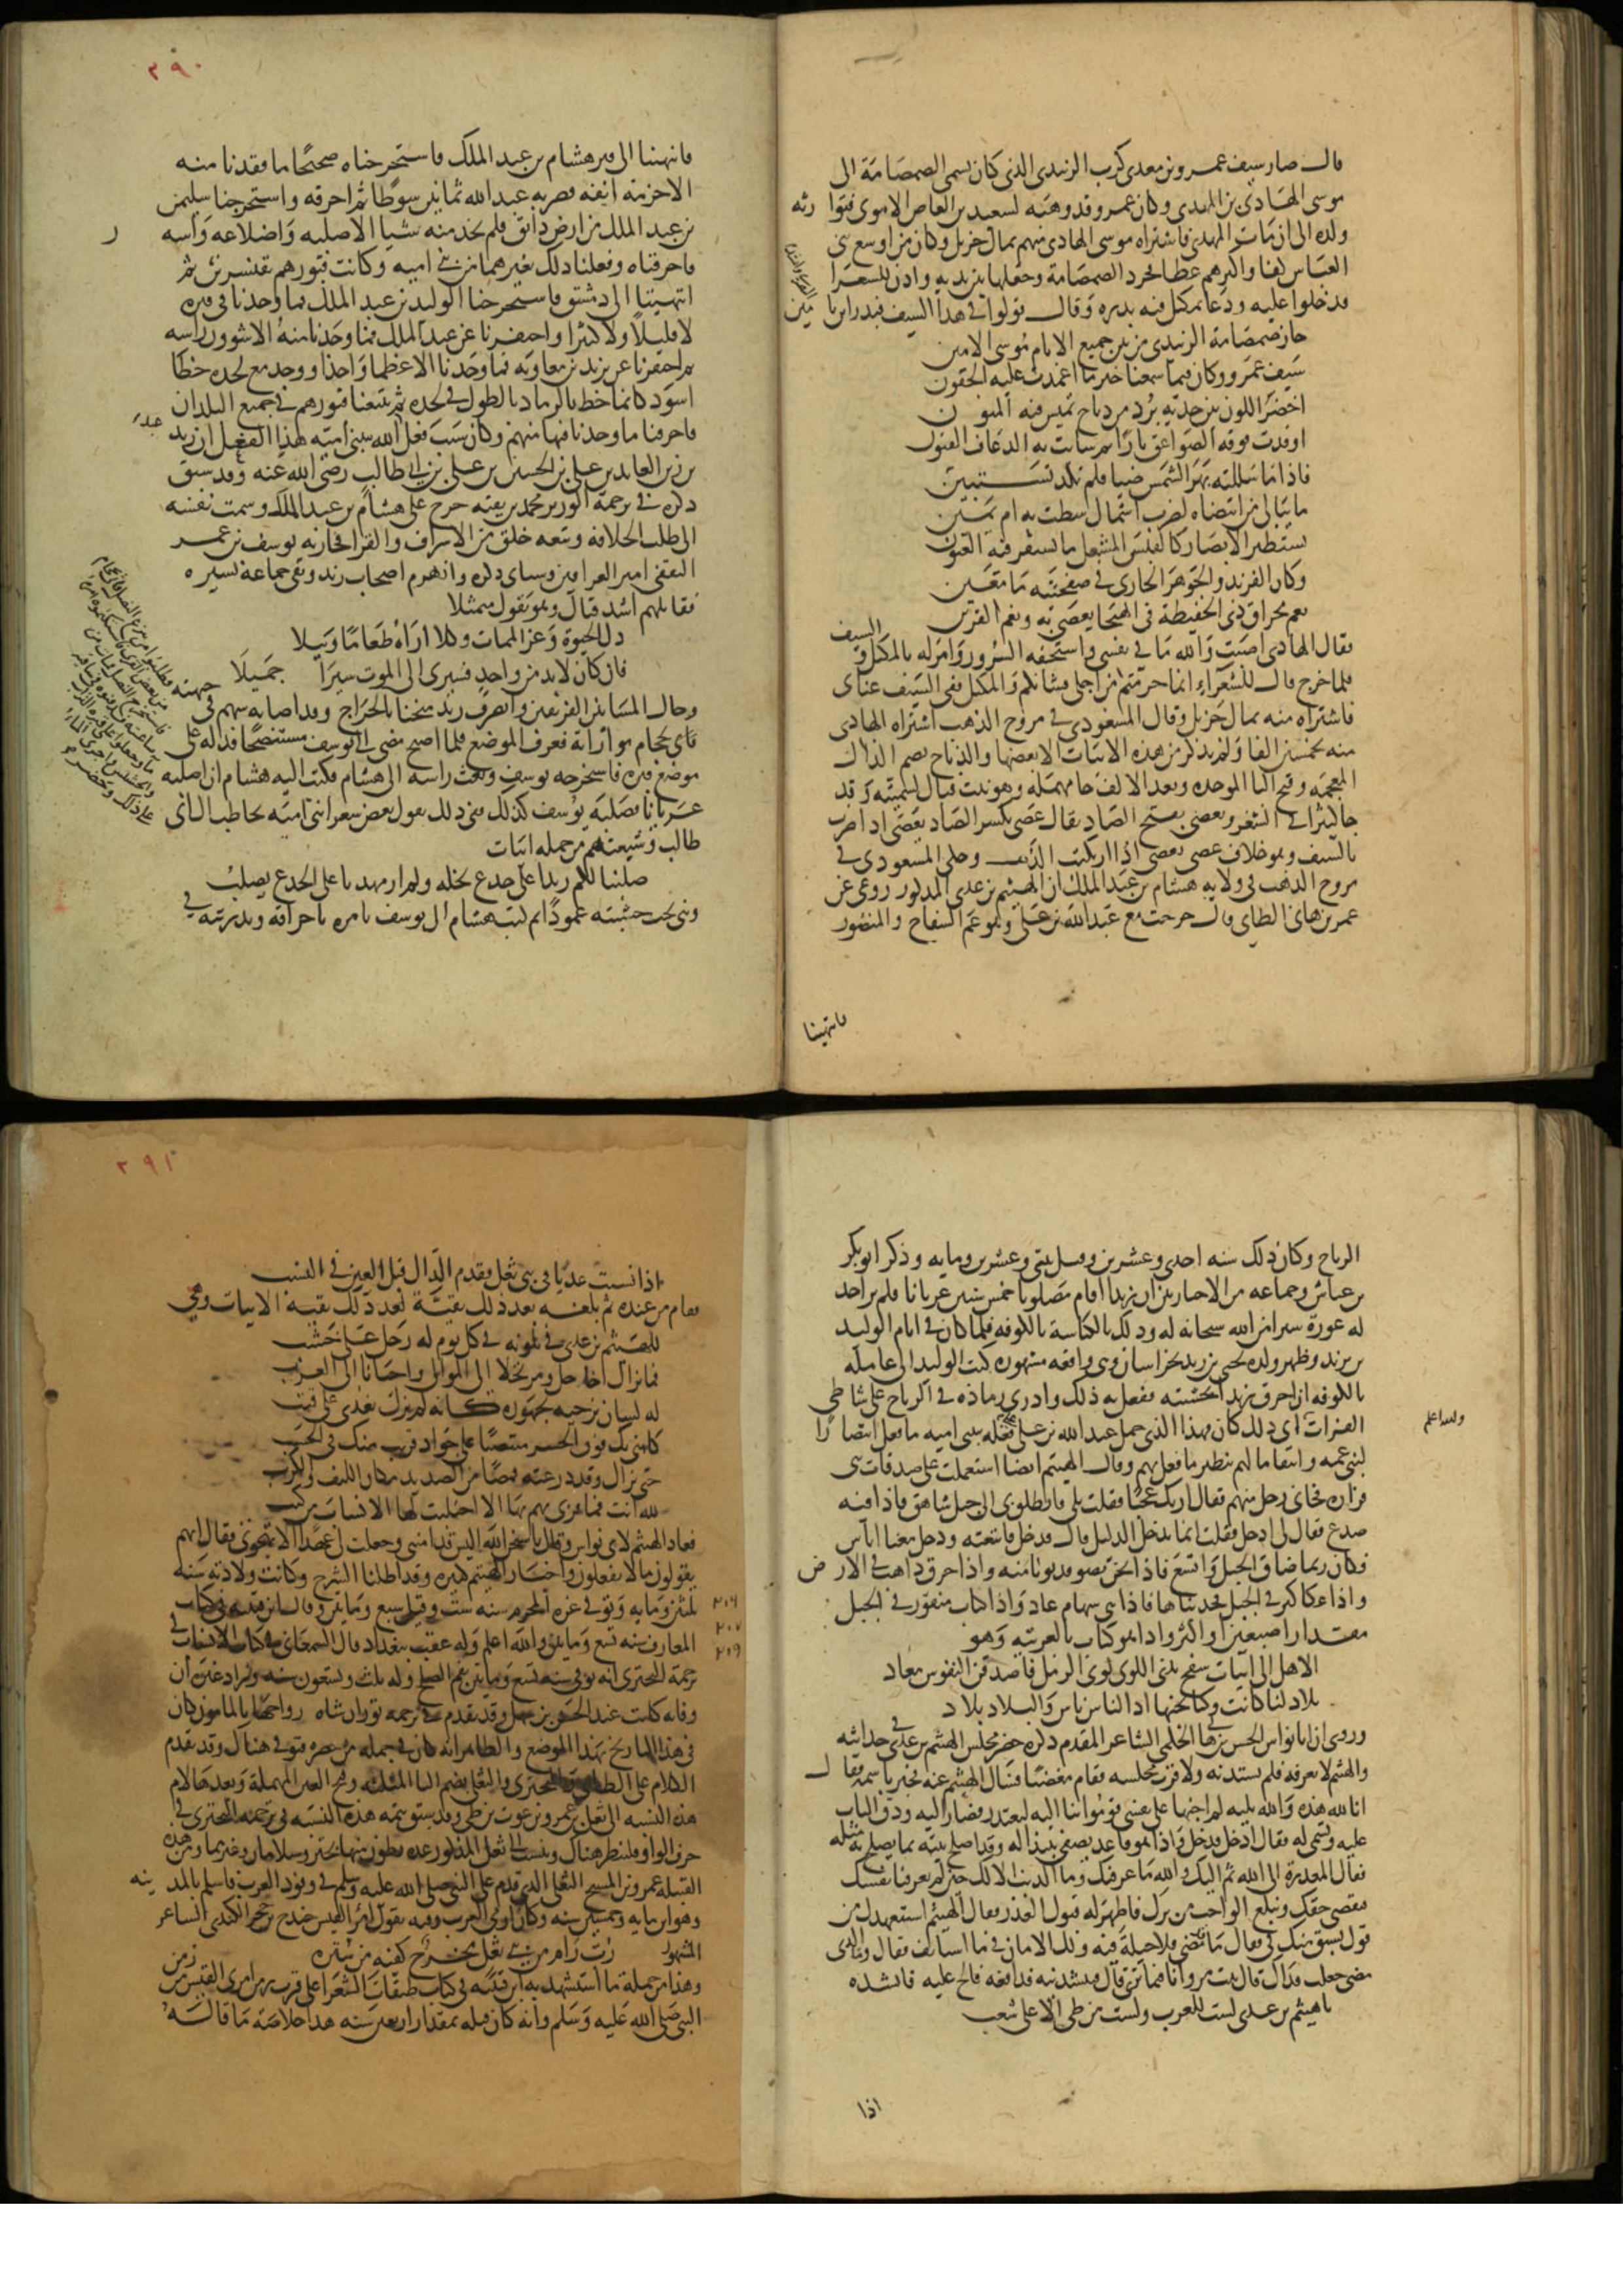 قال صار سيف عمرو بن معدي كرب الزبيدي الذي كان يسمى الصمصامة الى
موسى الهادي بن المهدي وكان عمرو قد وهبه لسعيد بن العاص الاموي فتوارثه
ولده الى ان مات المهدي فاشتراه موسى الهادي منهم بمال جزيل وكان من اوسع بني
العباس كفا واكثرهم عطا فجرد الصمصامة وجعلها بين يديه واذن للشعرا
فدخلوا عليه ودعا بمكتل فيه بدرة وقال قولوا في هذا السيف فبدر ابن يامين
حاز صمصامة الزبيدي من بين جميع الانام موسى الامين
سيف عمرو وكان فيما سمعنا خير ما اغمدت عليه الجفون
اخضر اللون بين حديه برد من ذباح تميس فيه المنون
اوقدت فوقه الصواعق نارا ثم شابت به الذعاف القيون
فاذا ما سللته بهر الشمس ضيا فلم تكد تستبين
ما يبالي من انتضاه لضرب اشمال سطت به ام يمين
يستطير الابصار كالقبس المشعل ما تستقر فيه العيون
وكان الفرند والجوهر الجاري في صفحتيه ما معين
نعم مخراق ذي الحفيظة في الهيجا يعصى به ونعم القرين
فقال الهادي اصبت والله ما في نفسي واستخفه السرور وامر له بالمكتل والسيف
فلما خرج قال للشعراء انما حرمتم من اجلي فشانكم والمكتل ففي السيف غناي
فاشتراه منه بمال جزيل وقال المسعودي في مروج الذهب اشتراه الهادي
منه بخمسين الفا ولم يذكر من هذه الابيات الا بعضها والذباح بضم الذال
المعجمة وفتح البا الموحدة وبعد الالف حا مهملة وهو نبت قتال لسميته وقد
جا كثيرا في الشعر ويعصى بفتح الصاد يقال عصي بكسر الصاد يعصى اذا ضرب
بالسيف وهو خلاف عصى يعصي اذا ارتكب الذنب وحكى المسعودي في
مروج الذهب في ولاية هشام بن عبد الملك ان الهيثم بن عدي المذكور روى عن
عمر بن هاني الطاي قال خرجت مع عبد الله بن علي وهو عم السفاح والمنصور
فانتهينا
٢٩٠
فانتهينا الى قبر هشام بن عبد الملك فاستخرجناه صحيحا ما فقدنا منه
الا خرمة انفه فضربه عبد الله ثمانين سوطا ثم احرقه واستخرجنا سليمن
بن عبد الملك من ارض دابق فلم نجد منه شيا الا صلبه واضلاعه وراسه
فاحرقناه وفعلنا ذلك بغيرهما من بني امية وكانت قبورهم بقنسرين ثم
انتهينا الى دمشق فاستخرجنا الوليد بن عبد الملك فما وجدنا في قبره
لا قليلا ولا كثيرا واحتفرنا عن عبد الملك فما وجدنا منه الا شوون راسه
ثم احتفرنا عن يزيد بن معاوية فما وجدنا الا عظما واحدا ووجد مع لحده خطا
اسود كانما خط بالرماد بالطول في لحده ثم تتبعنا قبورهم في جميع البلدان
فاحرقنا ما وجدنا فيها منهم وكان سبب فعل عبد الله ببني امية هذا الفعل ان زيد
بن زين العابدين علي بن الحسين بن علي بن ابي طالب رضي الله عنه وقد سبق
ذكره في ترجمة الوزير محمد بن بقية خرج على هشام بن عبد الملك وسمت نفسه
الى طلب الخلافة وتبعه خلق من الاشراف والقرا فحاربه يوسف بن عمر
الثقفي امير العراقين وسياتي ذكره وانهزم اصحاب زيد وبقي جماعة يسيرة
فقاتلهم اشد قتال وهو يقول متمثلا
ذل الحيوة وعز الممات وكلا اراه طعاما وبيلا
فان كان لابد من واحد فسيري الى الموت سيرا جميلا
وحال المسا بين الفريقين وانصرف زيد مثخنا بالجراح وقد اصابه سهم في جبهته
فاتي بحجام مواراته فعرف الموضع فلما اصبح مضى الى يوسف مستنصحا فدله على
موضع قبره فاستخرجه يوسف وبعث راسه الى هشام فكتب اليه هشام ان اصلبه
عريانا فصلبه يوسف كذلك ففي ذلك يقول بعض شعرا بني امية يخاطب ال ابي
طالب وشيعتهم من جملة ابيات
صلبنا لكم زيدا على جذع نخلة ولم ار مهديا على الجذع يصلب
وبنى تحت خشبته عمودا ثم كتب هشام الى يوسف يامره باحراقه وتذريته في
الرياح وكان ذلك سنة احدى وعشرين وقيل ثنتي وعشرين وماية وذكر ابو بكر
بن عياش وجماعة من الاخباريين ان زيدا اقام مصلوبا خمس سنين عريانا فلم ير احد
له عورة سترا من الله سبحانه له وذلك بالكناسة بالكوفة فلما كان في ايام الوليد
بن يزيد وظهر ولده يحيى بن زيد بخراسان وهي واقعة مشهورة كتب الوليد الى عامله
بالكوفة ان احرق زيدا بخشبته ففعل به ذلك واذري رماده في الرياح على شاطي
الفرات اي ذلك كان فهذا الذي حمل عبد الله بن علي على فعله ببني امية ما فعل انتصارا
والله اعلم
لبني عمه وانتقاما لهم بنظير ما فعل بهم وقال الهيثم ايضا استعملت على صدقات بني
فزارة فجاني رجل منهم فقال اريك عجبا فقلت بلى فانطلق بي الى جبل شاهق فاذا فيه
صدع فقال لي ادخل فقلت انما يدخل الدليل قال فدخل فاتبعته ودخل معنا اناس
فكان ربما ضاق الجبل واتسع فاذا نحن بضو فدنونا منه واذا خرق ذاهب في الارض
واذا عكاكيز في الجبل فجذبناها فاذا هي سهام عاد واذا كتاب منقور في الجبل
مقدار اصبعين او اكثر واذا هو كتاب بالعربية وهو
الا هل الى ابيات سفح بذي اللوى لوى الرمل فاصدقن النفوس معاد
بلاد لنا كانت وكنا نحبها اذ الناس ناس والبلاد بلاد
وروي ان ابا نواس الحسن بن هاني الحكمي الشاعر المقدم ذكره حضر مجلس الهيثم بن عدي في حداثته
والهيثم لا يعرفه فلم يستدنه ولا قرب مجلسه فقام مغضبا فسال الهيثم عنه فخبر باسمه فقال
انا لله هذه والله بلية لم اجنها على نفسي قوموا بنا اليه لنعتذر فصار اليه ودق الباب
عليه وتسمى له فقال ادخل فدخل فاذا هو قاعد يصفي نبيذا له وقد اصلح بيته بما يصلح به مثله
فقال المعذرة الى الله ثم اليك والله ما عرفتك وما الذنب الا لك حيث لم تعرفنا نفسك
فنقضي حقك ونبلغ الواجب من برك فاظهر له قبول العذر فقال الهيثم استعهدك من
قول يسبق منك في فقال ما قد مضى فلا حيلة فيه ولك الامان في ما استانف فقال وما الذي
مضى جعلت فداك قال بيت مر وانا فيما ترى قال فتنشدنيه فدافعه فالح عليه فانشده
يا هيثم بن عدي لست للعرب ولست من طي الا على شغب
اذا
٢٩١
اذا نسبت عديا في بني ثعل فقدم الدال قبل العين في النسب
فقام من عنده ثم بلغه بعد ذلك بقية الابيات وهي
للهيثم بن عدي في تلونه في كل يوم له رحل على خشب
فما يزال اخا حل ومرتحلا الى الموالي واحيانا الى العرب
له لسان يزجيه بجهوره كانه لم يزل يغدى على قتب
كانني بك فوق الجسر منتصبا على جواد قريب منك في الحسب
حتى نراك وقد درعته قمصا من الصديد مكان الليف والكرب
لله انت فما قربى تهم بها الا اجتلبت لها الانساب من كثب
فعاد الهيثم لابي نواس وقال يا سبحان الله اليس قد امنتني وجعلت لي عهدا الا تهجوني فقال انهم
يقولون ما لا يفعلون واخبار الهيثم كثيرة وقد اطلنا الشرح وكانت ولادته سنة
ثلثين وماية وتوفي في غرة المحرم سنة ست وقيل سبع ومايتين وقال ابن قتيبة في كتاب
٢٠٦
٢٠٧
المعارف سنة تسع ومايتين والله اعلم وله عقب ببغداد قال السمعاني في كتاب الانساب في
٢٠٩
ترجمة البحتري انه توفي سنة تسع ومايتين بفم الصلح وله ثلث وتسعون سنة وزاد غيره ان
وفاته كانت عند الحسن بن سهل وقد تقدم في ترجمة بوران شاه زواجها بالمامون كان
في هذا التاريخ بهذا الموضع والظاهر انه كان في جملة من حضر فتوفي هناك وقد تقدم
الكلام على الطاي والبحتري والثعلي بضم الثا المثلثة وفتح العين المهملة وبعدها لام
هذه النسبة الى ثعل بن عمرو بن غوث بن طي وقد سبق تتمة هذه النسبة في ترجمة البحتري في
حرف الواو فلينظر هناك وينسب الى ثعل المذكور عدة بطون منها بحتر وسلامان وغيرهما ومن هذه
القبيلة عمرو بن المسبح الثعلي الذي قدم على النبي صلى الله عليه وسلم في وفود العرب فاسلم بالمدينة
وهو ابن ماية وخمسين سنة وكان ارمى العرب وفيه يقول امرؤ القيس حندج بن حجر الكندي الشاعر
المشهور رب رام من بني ثعل مخرج كفيه من ستره
وهذا من جملة ما استشهد به ابن قتيبة في كتاب طبقات الشعرا على قرب زمن امرئ القيس من
النبي صلى الله عليه وسلم وانه كان قبله بمقدار اربعين سنة هذا خلاصة ما قاله